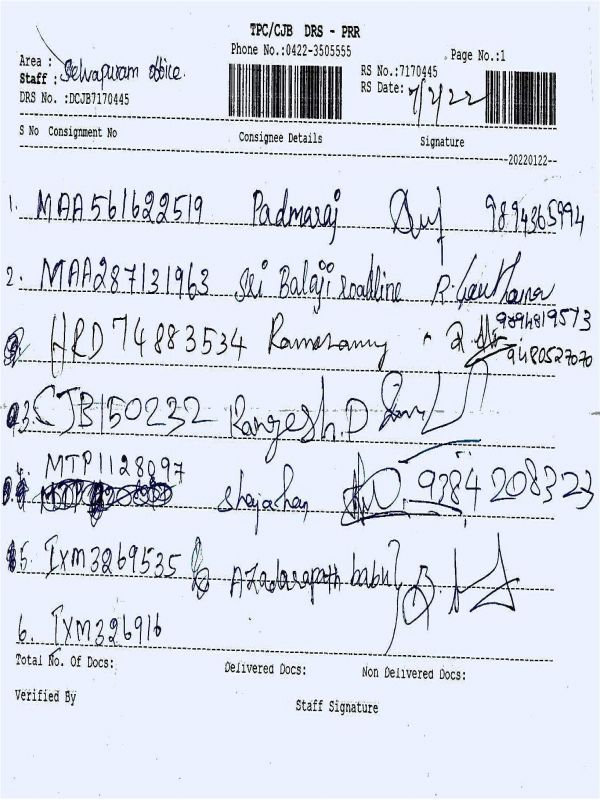 TPC/CJB DRS - PRR
Phone No.:0422-3505555
Page No.:1
Area :
Staff : Selvapuram office.
RS No.:7170445
RS Date: 7/2/22
DRS No. :DCJB7170445
S No Consignment No Consignee Details Signature
20220122
1. MAA561622519 Padmaraj 9894365994
2. MAA287131963 Sri Balaji roadline R. Gouthama
HRD 74883534 Ramasamy 9894819573
9480527070
3. CJB150232 Rangesh.P
4. MTP1128097
Shajachan 9384208323
5. IXM3269535 Azadarapath babu
6. IXM326916
Total No. Of Docs: Delivered Docs: Non Delivered Docs:
Verified By Staff Signature